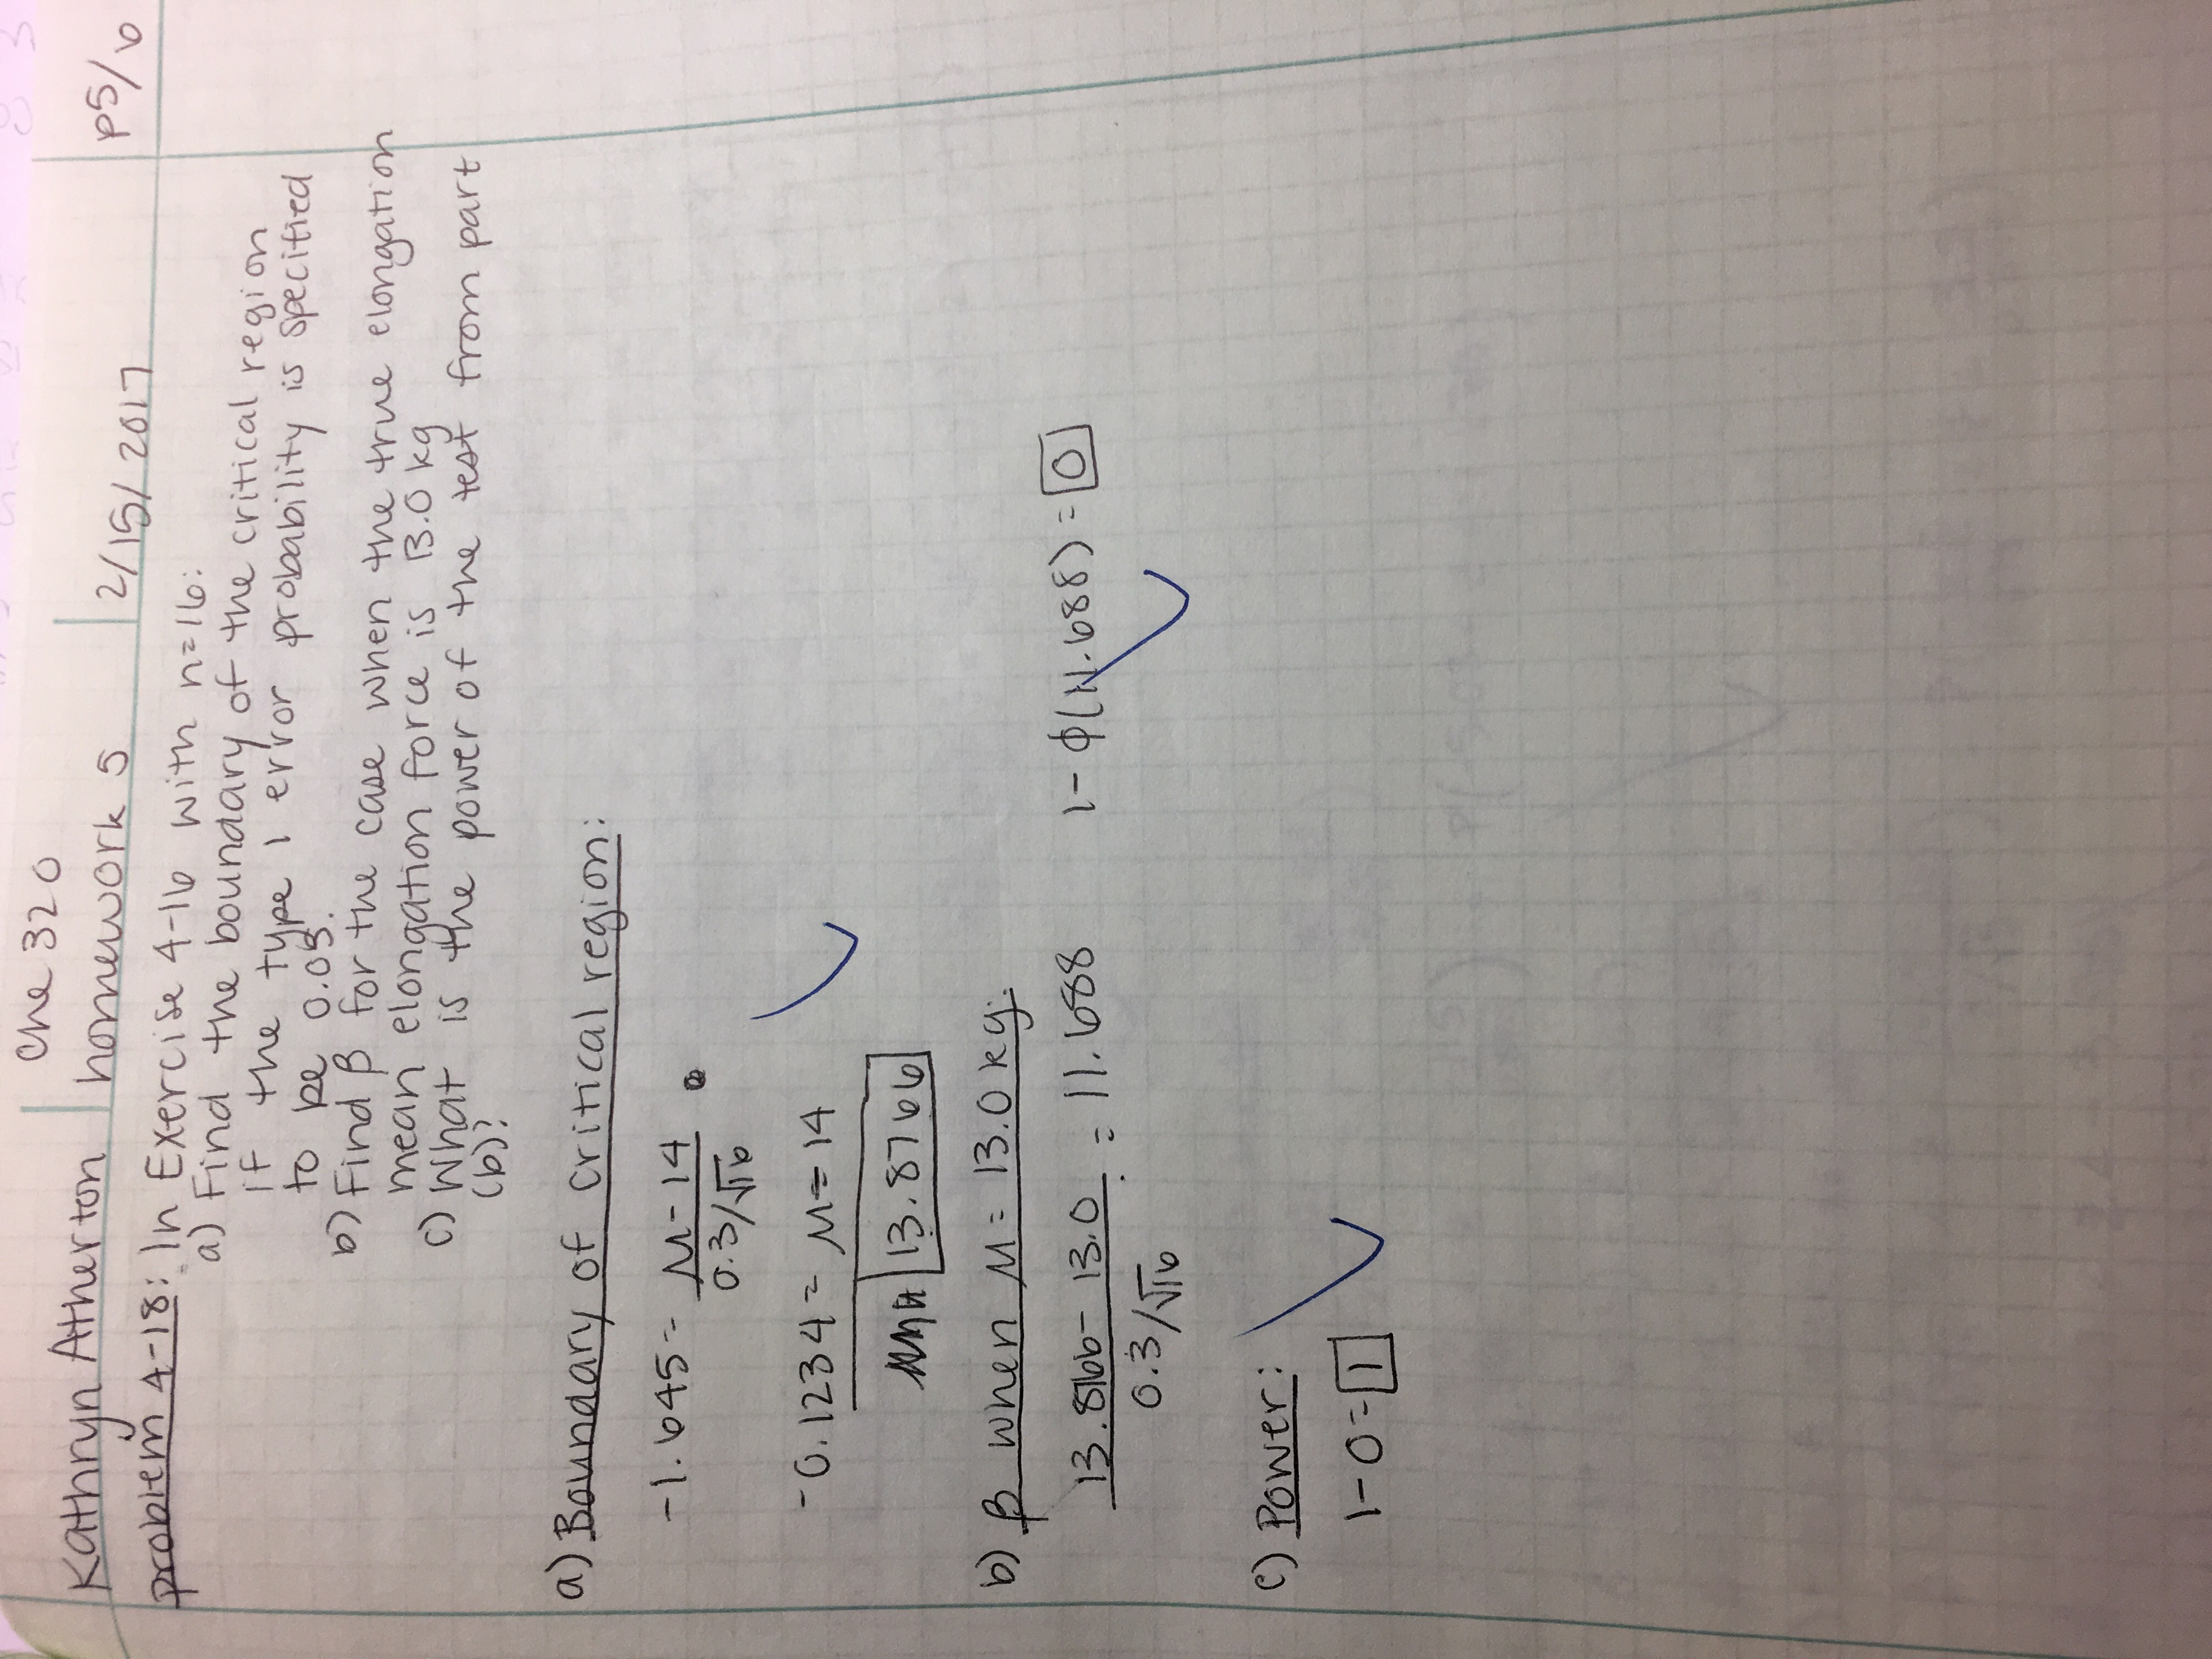 Che 320
Kathryn Atherton homework 5 2/15/2017 p5/6
problem 4-18: In Exercise 4-16 with n=16:
a) Find the boundary of the critical region
if the type 1 error probability is specified
to be 0.05.
b) Find β for the case when the true elongation
mean elongation force is 13.0 kg
c) What is the power of the test from part
(b)?
a) Boundary of critical region:
-1.645 = μ - 14
0.3/√16
-0.1234 = μ = 14
13.8766
b) β when μ = 13.0 kg:
13.8766 - 13.0 = 11.688 1 - ϕ(11.688) = 0
0.3/√16
c) Power:
1 - 0 = 1